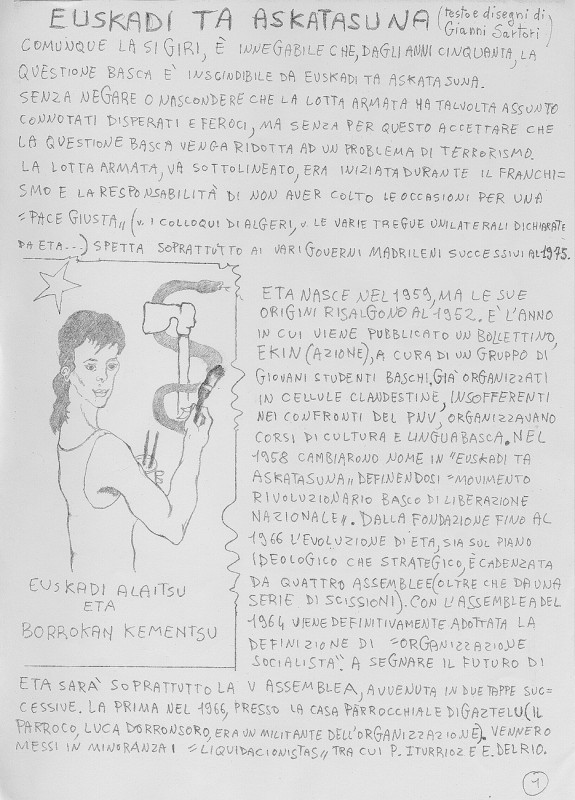 EUSKADI TA ASKATASUNA (testo e disegni di
Gianni Sartori)
COMUNQUE LA SI GIRI, È INNEGABILE CHE, DAGLI ANNI CINQUANTA, LA
QUESTIONE BASCA E' INSCINDIBILE DA EUSKADI TA ASKATASUNA.
SENZA NEGARE O NASCONDERE CHE LA LOTTA ARMATA HA TALVOLTA ASSUNTO
CONNOTATI DISPERATI E FEROCI, MA SENZA PER QUESTO ACCETTARE CHE
LA QUESTIONE BASCA VENGA RIDOTTA AD UN PROBLEMA DI TERRORISMO.
LA LOTTA ARMATA, VA SOTTOLINEATO, ERA INIZIATA DURANTE IL FRANCHI=
SMO E LA RESPONSABILITÀ DI NON AVER COLTO LE OCCASIONI PER UNA
"PACE GIUSTA" (v. I COLLOQUI DI ALGERI, v. LE VARIE TREGUE UNILATERALI DICHIARATE
DA ETA...) SPETTA SOPRATTUTTO AI VARI GOVERNI MADRILENI SUCCESSIVI AL 1975.
ETA NASCE NEL 1959, MA LE SUE
ORIGINI RISALGONO AL 1952. E' L'ANNO
IN CUI VIENE PUBBLICATO UN BOLLETTINO,
EKIN (AZIONE), A CURA DI UN GRUPPO DI
GIOVANI STUDENTI BASCHI. GIA' ORGANIZZATI
IN CELLULE CLANDESTINE, INSOFFERENTI
NEI CONFRONTI DEL PNV, ORGANIZZAVANO
CORSI DI CULTURA E LINGUA BASCA. NEL
1958 CAMBIARONO NOME IN "EUSKADI TA
ASKATASUNA" DEFINENDOSI "MOVIMENTO
RIVOLUZIONARIO BASCO DI LIBERAZIONE
NAZIONALE". DALLA FONDAZIONE FINO AL
1966 L'EVOLUZIONE DI ETA, SIA SUL PIANO
IDEOLOGICO CHE STRATEGICO, È CADENZATA
DA QUATTRO ASSEMBLEE (OLTRE CHE DA UNA
SERIE DI SCISSIONI). CON L'ASSEMBLEA DEL
1964 VIENE DEFINITIVAMENTE ADOTTATA LA
DEFINIZIONE DI "ORGANIZZAZIONE
SOCIALISTA". A SEGNARE IL FUTURO DI
EUSKADI ALAITSU
ETA
BORROKAN KEMENTSU
ETA SARA' SOPRATTUTTO LA V ASSEMBLEA, AVVENUTA IN DUE TAPPE SUC=
CESSIVE. LA PRIMA NEL 1966, PRESSO LA CASA PARROCCHIALE DI GAZTELU (IL
PARROCO, LUCA DORRONSORO, ERA UN MILITANTE DELL'ORGANIZZAZIONE). VENNERO
MESSI IN MINORANZA I "LIQUIDACIONISTAS" TRA CUI P. ITURRIOZ E E. DEL RIO.
1